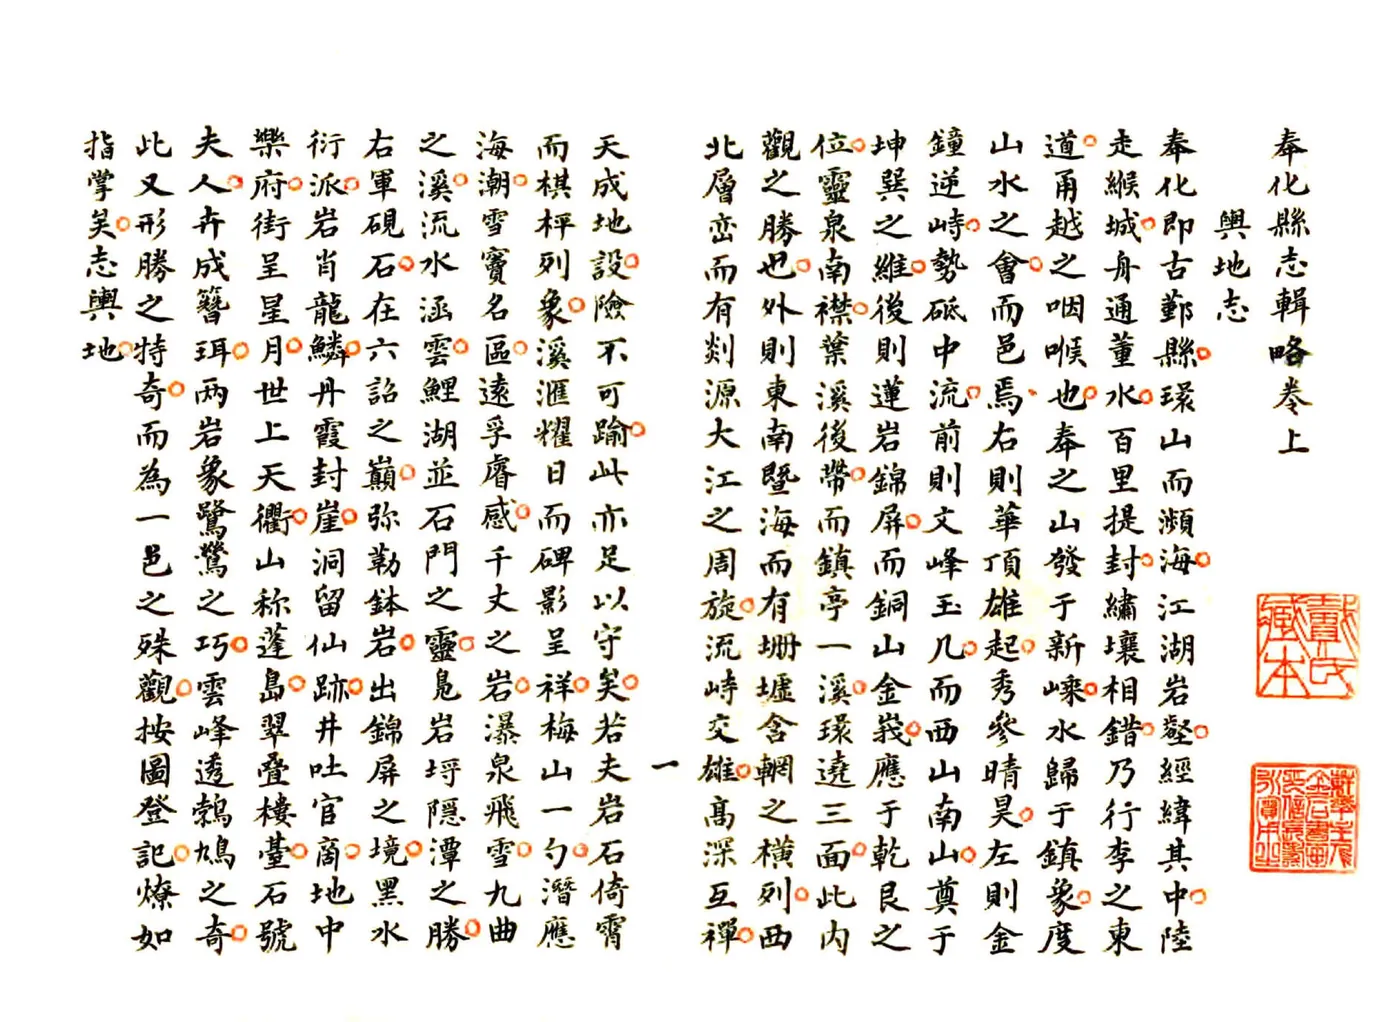 奉化縣志輯略卷上
輿地志
奉化即古鄞縣環山而瀕海江湖岩壑經緯其中陸
走緱城舟通董水百里提封繡壤相錯乃行李之東
道甬越之咽喉也奉之山發于新嵊水歸于鎮象度
山水之會而邑焉右則華頂雄起秀參晴昊左則金
鐘逆峙勢砥中流前則文峰玉几而西山南山奠于
坤巽之維後則蓮岩錦屏而銅山金峩應于乾艮之
位靈泉南襟葉溪後帶而鎮亭一溪環遶三面此内
觀之勝也外則東南暨海而有珊墟含輞之橫列西
北層巒而有剡源大江之周旋流峙交雄髙深互禪
一
天成地設險不可踰此亦足以守矣若夫岩石倚霄
而棋枰列象溪滙耀日而碑影呈祥梅山一勺潛應
海潮雪竇名區遠孚睿感千丈之岩瀑泉飛雪九曲
之溪流水涵雲鯉湖並石門之靈凫岩埒隠潭之勝
右軍硯石在六詔之巔弥勒鉢岩出錦屏之境黒水
衍派岩肖龍鱗丹霞封崖洞留仙跡井吐官商地中
樂府街呈星月世上天衢山称蓬島翠疊樓臺石號
夫人卉成簪珥两岩象鷺鶯之巧雲峰透鵓鳩之奇
此又形勝之特奇而為一邑之殊觀按圖登記燎如
指掌矣志輿地
戴氏
藏本